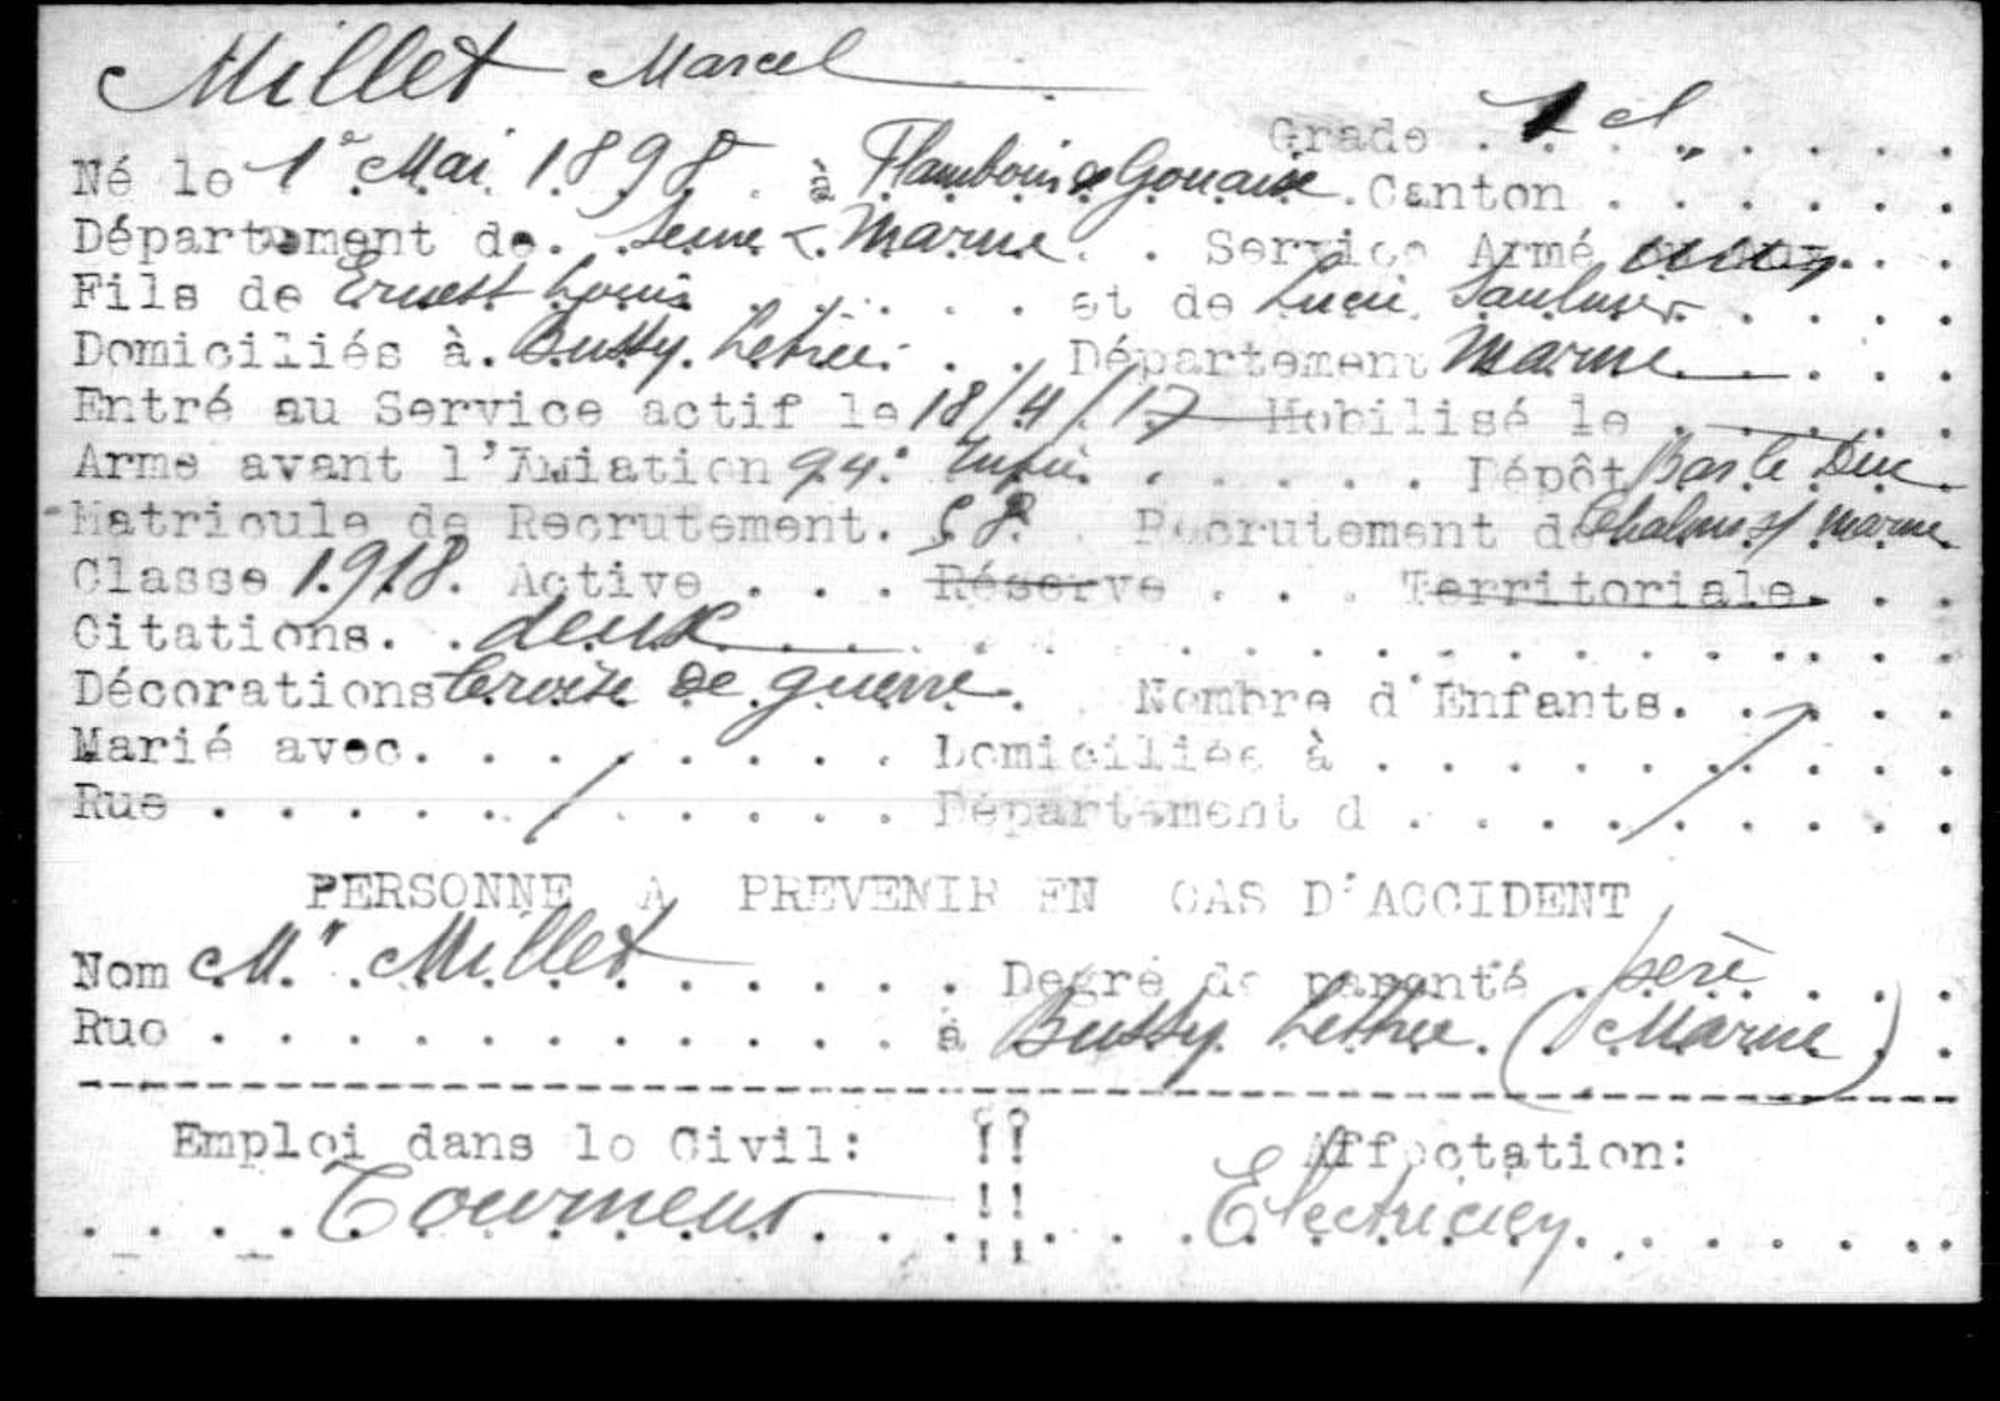 Millet Marcel
Grade 1 cl
Né le 1er Mai 1898 à Flamboin Gouaix Canton
Département de Seine & Marne Service Armé
Fils de Ernest Louis et de Lucie Saulnier
Domiciliés à Bussy Letrée Département Marne
Entré au Service actif le 18/4/17 Mobilisé le
Arme avant l'Aviation 94e Infie Dépôt Bar le Duc
Matricule de Recrutement 58 Recrutement de Chalons s/ Marne
Classe 1918 Active Réserve Territoriale
Citations deux
Décorations Croix de guerre Nombre d'Enfants
Marié avec Domiciliée à
Rue Département d
PERSONNE A PREVENIR EN CAS D'ACCIDENT
Nom Mr Millet Degré de parenté père
Rue à Bussy Lettrée (Marne)
Emploi dans le Civil: !! Affectation:
Tourneur !! Electricien
!!